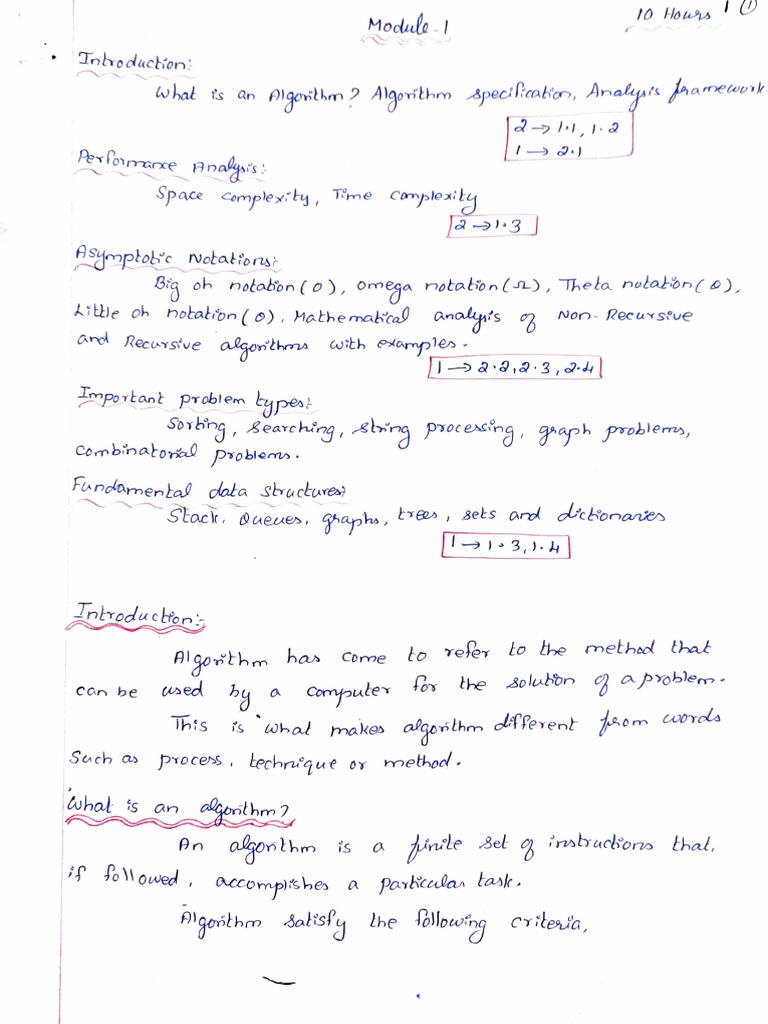 10 Hours 1 ①
Module-1
Introduction:
What is an Algorithm? Algorithm specification, Analysis framework.
2 → 1.1, 1.2
1 → 2.1
Performance Analysis:
Space complexity, Time complexity
2 → 1.3
Asymptotic Notations:
Big oh notation (O), omega notation (Ω), Theta notation (θ),
Little oh notation (θ), Mathematical analysis of Non-Recursive
and Recursive algorithms with examples.
1 → 2.2, 2.3, 2.4
Important problem types:
Sorting, Searching, string processing, graph problems,
combinatorial problems.
Fundamental data structures:
Stack, Queues, graphs, trees, sets and dictionaries
1 → 1.3, 1.4
Introduction:-
Algorithm has come to refer to the method that
can be used by a computer for the solution of a problem.
This is what makes algorithm different from words
Such as process, technique or method.
What is an algorithm?
An algorithm is a finite set of instructions that,
if followed, accomplishes a particular task.
Algorithm satisfy the following criteria,